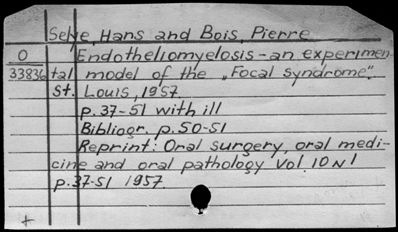 Selye, Hans and Bois, Pierre
O Endotheliomyelosis - an experimen-
33836 tal model of the „Focal syndrome".
St. Louis, 1957.
p. 37-51 with ill
Bibliogr. p. 50-51
Reprint: Oral surgery, oral medi-
cine and oral pathology Vol. 10 N 1
p. 37-51 1957.
+